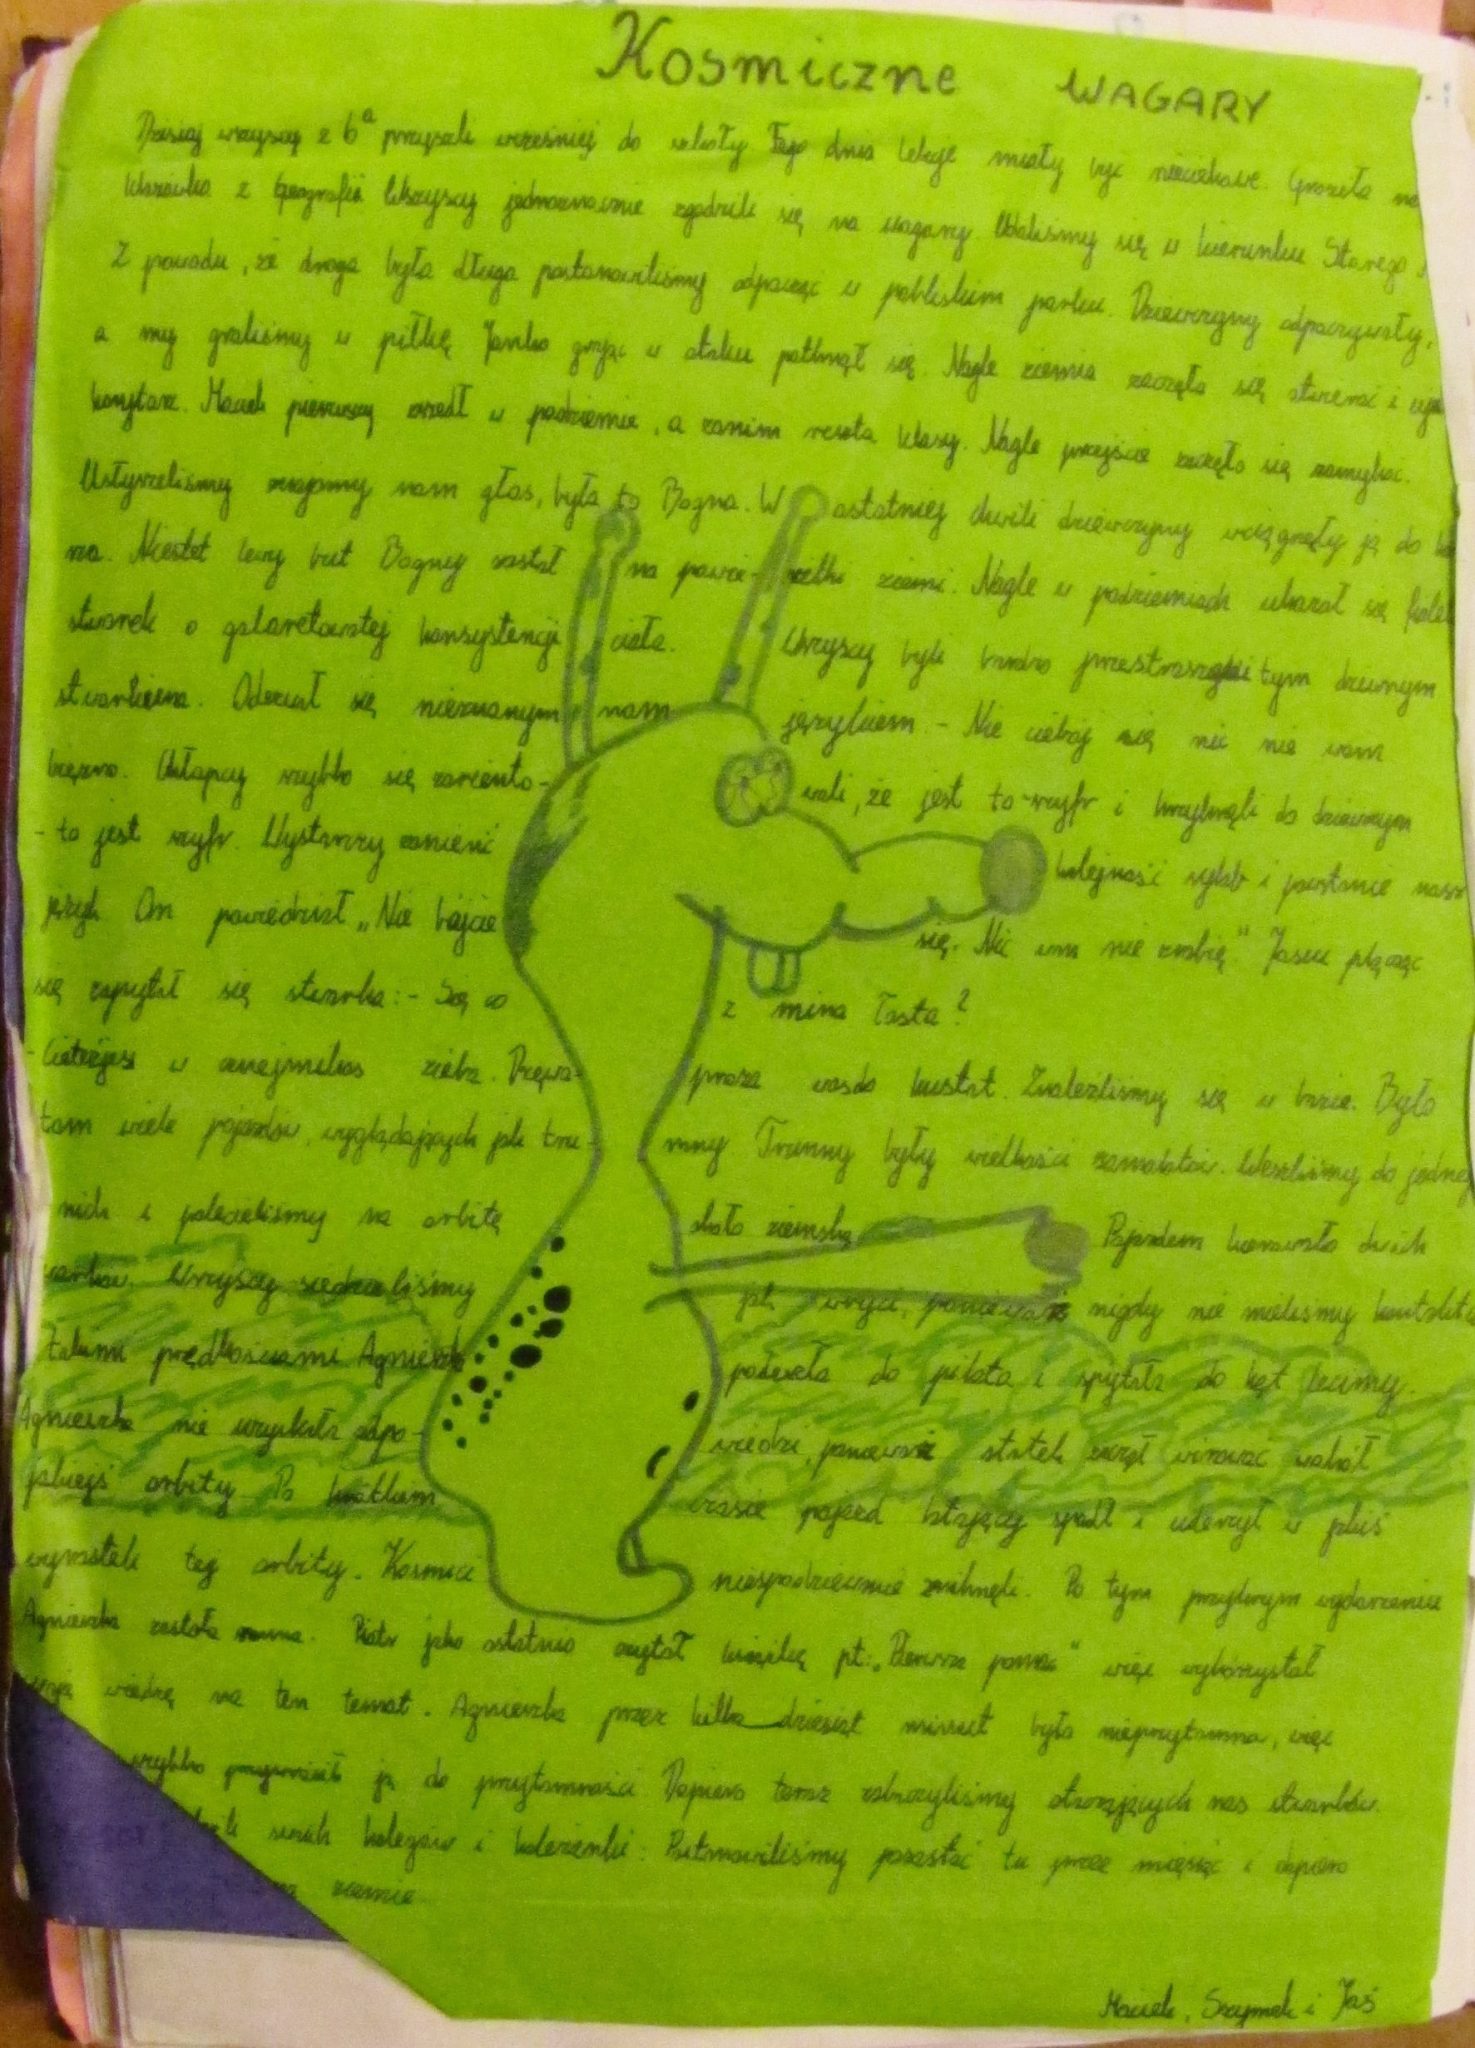 Kosmiczne WAGARY
Dzisiaj wszyscy z 6a przyszli wcześniej do szkoły. Tego dnia lekcje miały być nieciekawe. Groziła na
klasówka z Geografii. Wszyscy jednoznacznie zgodzili się na wagary. Udaliśmy się w kierunku Starego
Z powodu, że droga była długa postanowiliśmy odpocząć w pobliskim parku. Dziewczyny odpoczywały,
a my graliśmy w piłkę. Janko grając w ataku potknął się. Nagle ziemia zaczęła się otwierać i
korytarz. Maciek pierwszy zszedł w podziemie, a zanim reszta klasy. Nagle przejście zaczęło się zamykać.
Usłyszeliśmy znajomy nam głos, była to Bogna. W ostatniej chwili dziewczyny wciągnęły ją do
za. Niestet lewy but Bogny został na powierzchni ziemi. Nagle w podziemiach ukazał się
stworek o galaretowatej konsystencji ciała. Wszyscy byli bardzo przestraszeni tym dziwnym
stworkiem. Odezwał się nieznanym nam językiem. - Nie ciebój się nic nie wam
bięzro. Chłopcy szybko się zoriento- wali, że jest to szyfr i krzyknęli do dziewczyn
- to jest szyfr. Wystarczy zmienić kolejność sylab i powstanie nasz
język. On powiedział „Nie bójcie się. Nic wam nie zrobię." Jasiu plącząc
się zapytał się stworka: - Są co z mina łosta?
w zieba. Znaleźliśmy się w bazie. Było
tam wiele pojazdów, wyglądających jak tru- mny. Trumny były wielkości samolotów. Weszliśmy do jednej
nich i polecieliśmy na orbitę około ziemską. Pojazdem kierowało dwóch
Wszyscy siedzieliśmy ponieważ nigdy nie mieliśmy
takimi prędkościami. Agnieszka podeszła do pilota i spytała do kąt lecimy.
Agnieszka nie uzyskała odpo- wiedzi, ponieważ statek zaczął wirować wokół
jakiejś orbity. Po krótkim czasie pojazd latający spadł i uderzył w jakiś
wyrostek tej orbity. Kosmici niespodziewanie zniknęli. Po tym przykrym wydarzeniu
Agnieszka została ranna. Piotr jako ostatnio czytał książkę pt: „Pierwsza pomoc" więc wykorzystał
wiedzę na ten temat. Agnieszka przez kilka dziesiąt minut była nieprzytomna, więc
szybko przywrócił ją do przytomności. Dopiero teraz zobaczyliśmy otaczających nas stworków.
swoich kolegów i koleżanki. Postanowiliśmy pozostać tu przez miesiąc i dopiero
ziemie.
Maciek, Szymek i Jaś